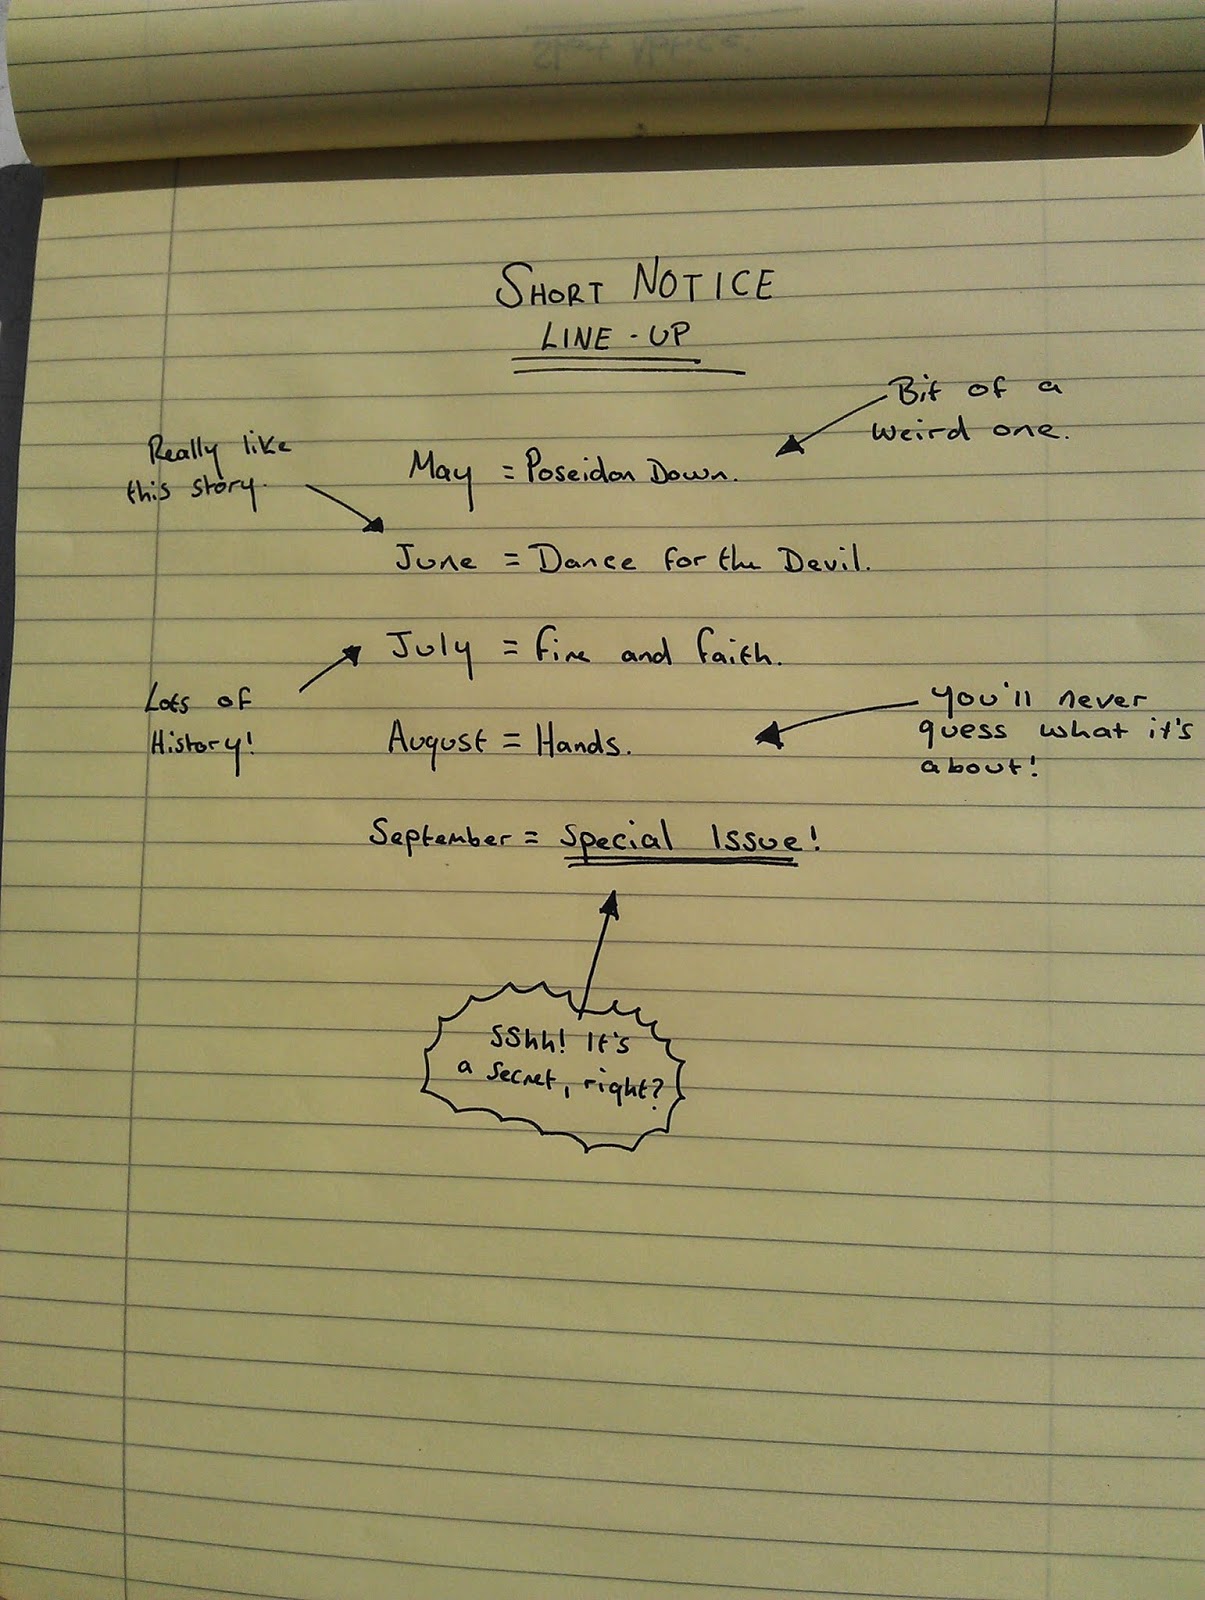 SHORT NOTICE
LINE-UP
Bit of a
weird one.
Really like
this story.
May = Poseidon Down.
June = Dance for the Devil.
July = Fire and Faith.
Lots of
History!
You'll never
guess what it's
about!
August = Hands.
September = Special Issue!
SShh! It's
a secret, right?